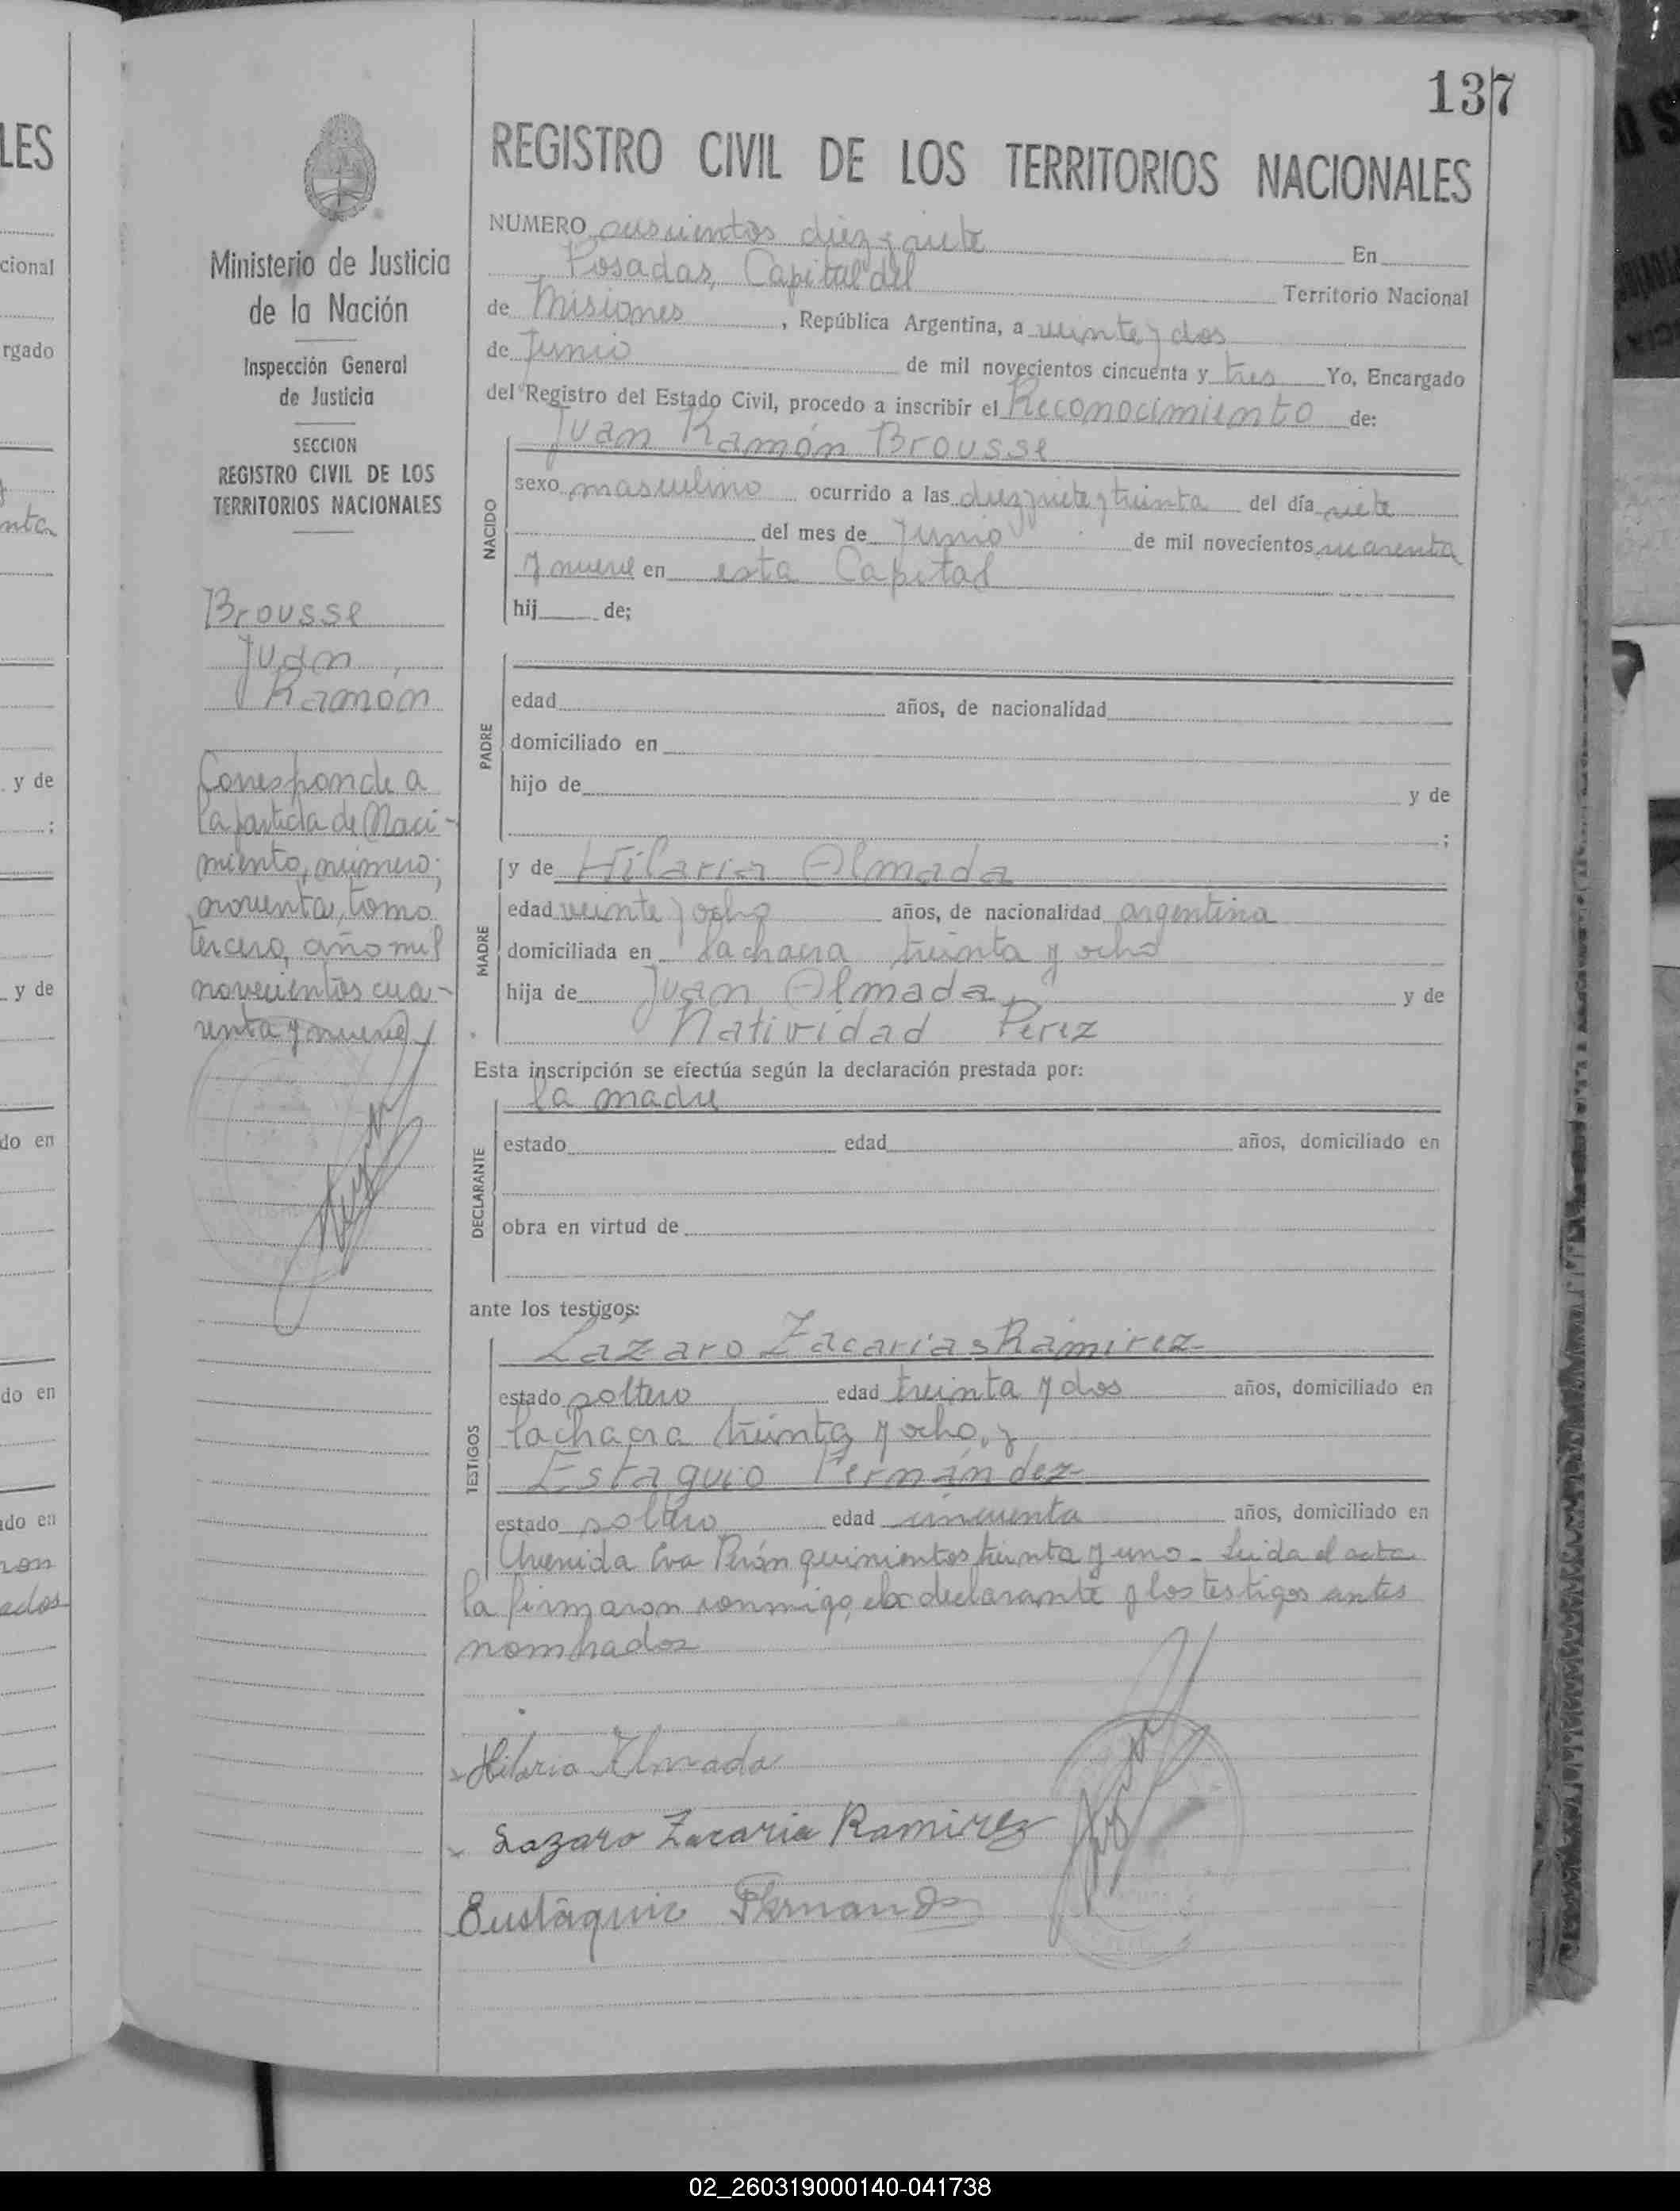 137
REGISTRO CIVIL DE LOS TERRITORIOS NACIONALES
Ministerio de Justicia
de la Nación
Inspección General
de Justicia
SECCION
REGISTRO CIVIL DE LOS
TERRITORIOS NACIONALES
Brousse
Juan
Ramón
Corresponde a
la partida de Naci-
miento, número,
noventa, tomo
tercero, año mil
novecientos cua-
renta y nueve
NUMERO diez y siete En
Posadas, Capital del Territorio Nacional
de Misiones, República Argentina, a veinte y dos
de Junio de mil novecientos cincuenta y tres Yo, Encargado
del Registro del Estado Civil, procedo a inscribir el Reconocimiento de:
Juan Ramón Brousse
NACIDO
sexo masculino ocurrido a las diez y siete y treinta del día siete
del mes de Junio de mil novecientos cuarenta
y nueve en esta Capital
hij de;
PADRE
edad años, de nacionalidad
domiciliado en
hijo de y de
;
MADRE
y de Hilaria Almada
edad veinte y ocho años, de nacionalidad argentina
domiciliada en la chacra treinta y ocho
hija de Juan Almada, y de
Natividad Pérez
Esta inscripción se efectúa según la declaración prestada por:
la madre
DECLARANTE
estado edad años, domiciliado en
obra en virtud de
ante los testigos:
TESTIGOS
Lazaro Zacarias Ramirez
estado soltero edad treinta y dos años, domiciliado en
la chacra treinta y ocho, y
Estaquio Fernández
estado soltero edad cincuenta años, domiciliado en
Avenida Eva Perón quinientos treinta y uno - Leida el acta
la firmaron conmigo, declarante y los testigos antes
nombrados
Hilaria Almada
Lazaro Zacaria Ramirez
Eustaquio
LES
cional
rgado
nta
y de
;
y de
do en
do en
do en
ados
02_260319000140-041738